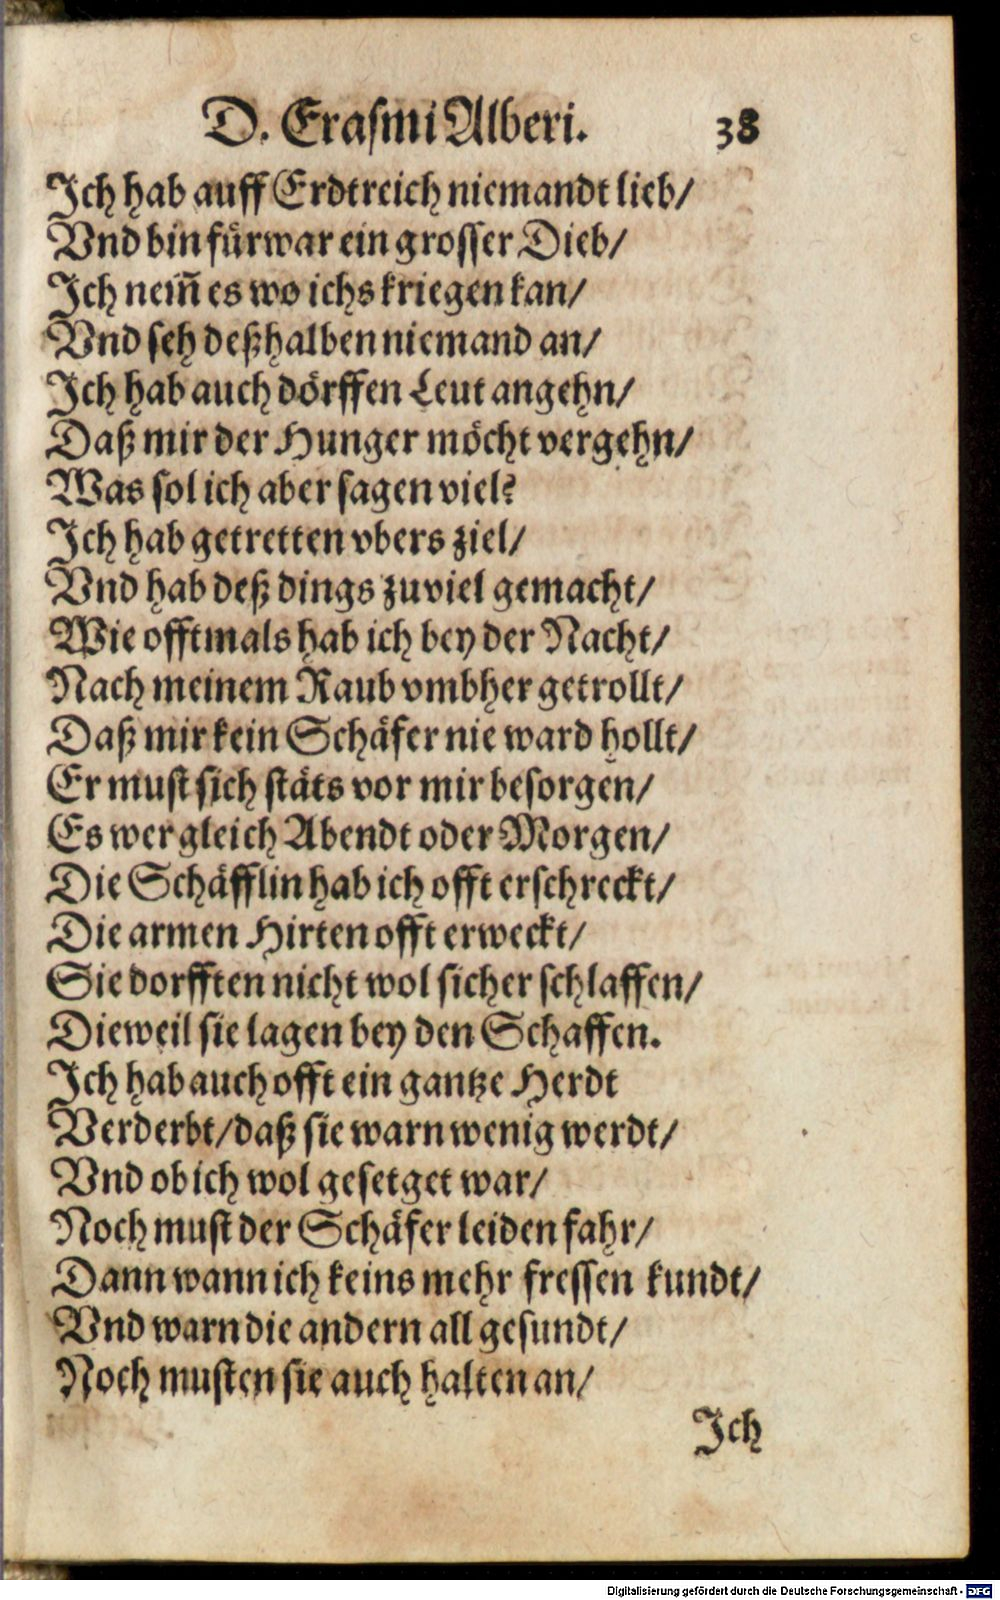 D. Erasmi Alberi. 38
Ich hab auff Erdtreich niemandt lieb/
Vnd bin fürwar ein grosser Dieb/
Ich nem̃ es wo ichs kriegen kan/
Vnd seh deßhalben niemand an/
Ich hab auch dörffen Leut angehn/
Daß mir der Hunger möcht vergehn/
Was sol ich aber sagen viel?
Ich hab getretten vbers ziel/
Vnd hab deß dings zuviel gemacht/
Wie offtmals hab ich bey der Nacht/
Nach meinem Raub vmbher getrollt/
Daß mir kein Schäfer nie ward hollt/
Er must sich stäts vor mir besorgen/
Es wer gleich Abendt oder Morgen/
Die Schäfflin hab ich offt erschreckt/
Die armen Hirten offt erweckt/
Sie dorfften nicht wol sicher schlaffen/
Dieweil sie lagen bey den Schaffen.
Ich hab auch offt ein gantze Herdt
Verderbt/daß sie warn wenig werdt/
Vnd ob ich wol gesetget war/
Noch must der Schäfer leiden fahr/
Dann wann ich keins mehr fressen kundt/
Vnd warn die andern all gesundt/
Noch musten sie auch halten an/
Ich
Digitalisierung gefördert durch die Deutsche Forschungsgemeinschaft - DFG